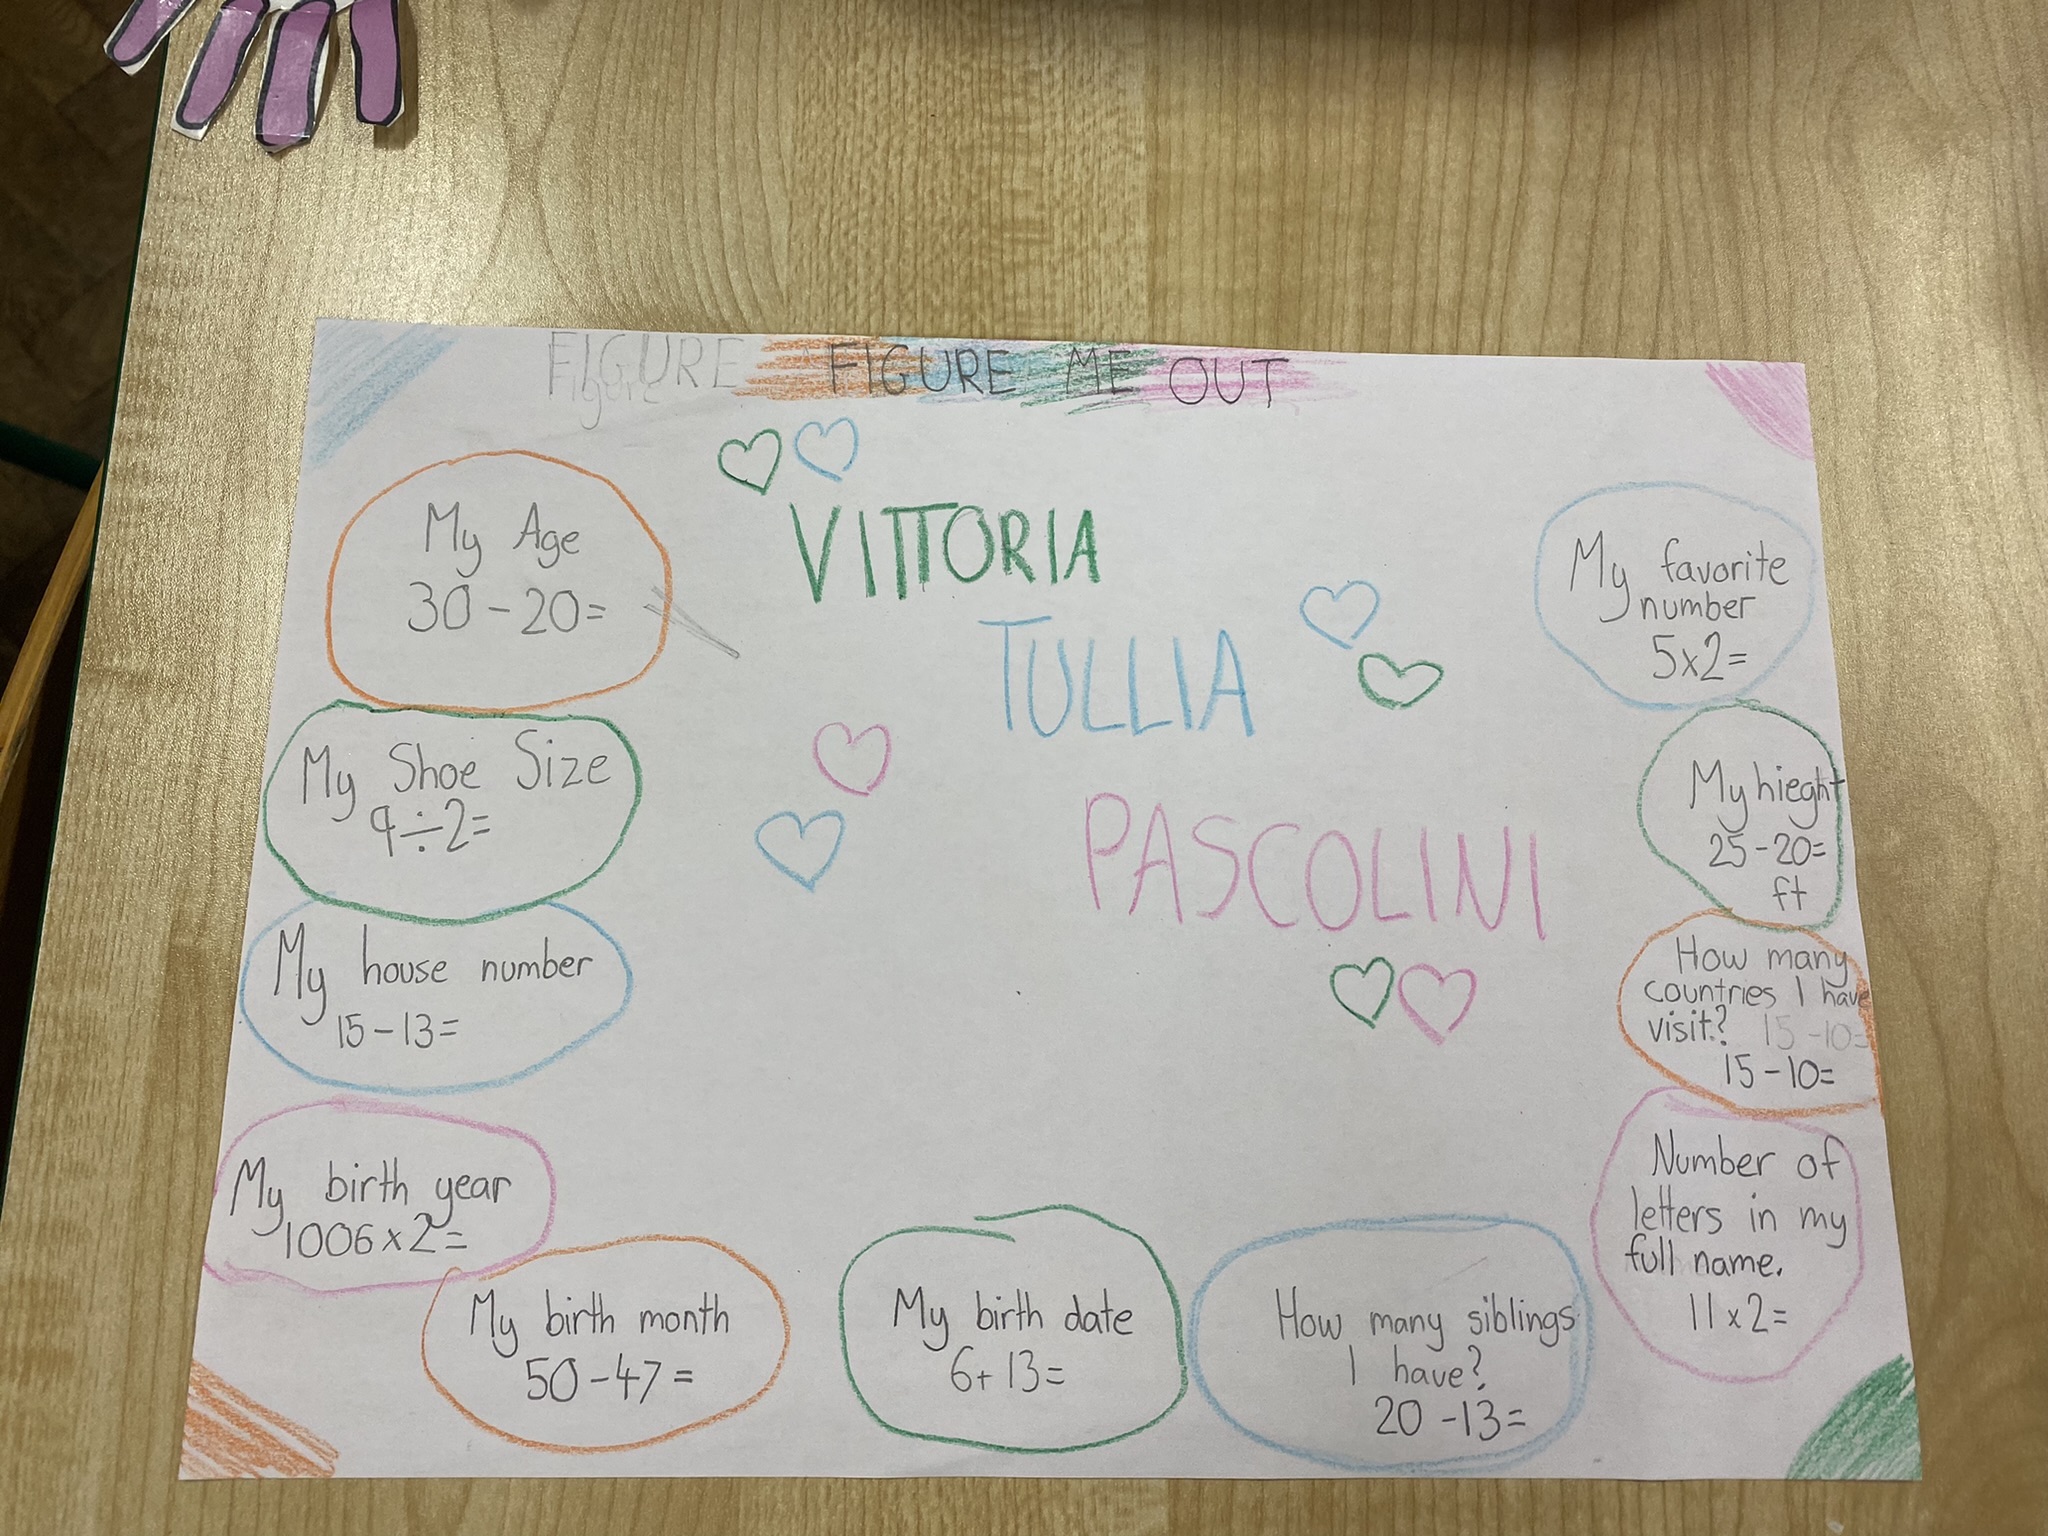 FIGURE FIGURE ME OUT
Figure
VITTORIA
TULLIA
PASCOLINI
My Age
30-20=
My Shoe Size
9÷2=
My house number
15-13=
My birth year
1006x2=
My birth month
50-47=
My birth date
6+13=
How many siblings
I have?
20-13=
My favorite
number
5x2=
My hieght
25-20=
ft
How many
countries I have
visit? 15-10=
15-10=
Number of
letters in my
full name.
11x2=